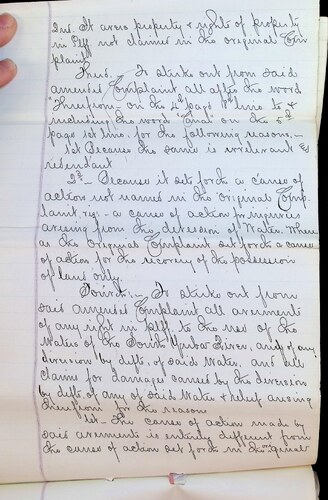 2nd. It avers property & rights of property
in Plff not claimed in the original Com
plaint
Third.— To strike out from said
amended Complaint, all after the word
"Therefrom" on the 4th page 8th line to &
including the word "Canal" on the 5th
page 1st line. for the following reasons,—
1st Because the same is irrelevant & re
dundant
2d— Because it sets forth a cause of
action not named in the original Comp.
laint, viz.— a cause of action for injuries
arising from the diversion of Water. Where
as the Original Complaint sets forth a cause
of action for the recovery of the possession
of land only.
Fourth.— To strike out from
said amended Complaint all averments
of any right in plff. to the use of the
Waters of the South Yuba River, and of any
diversion by defts. of said Water, and all
claims for damages caused by the diversion
by defts. of any of said Water & relief arising
therefrom for the reasons
1st— The cause of action made by
said averments is entirely different from
the cause of action set forth in the original